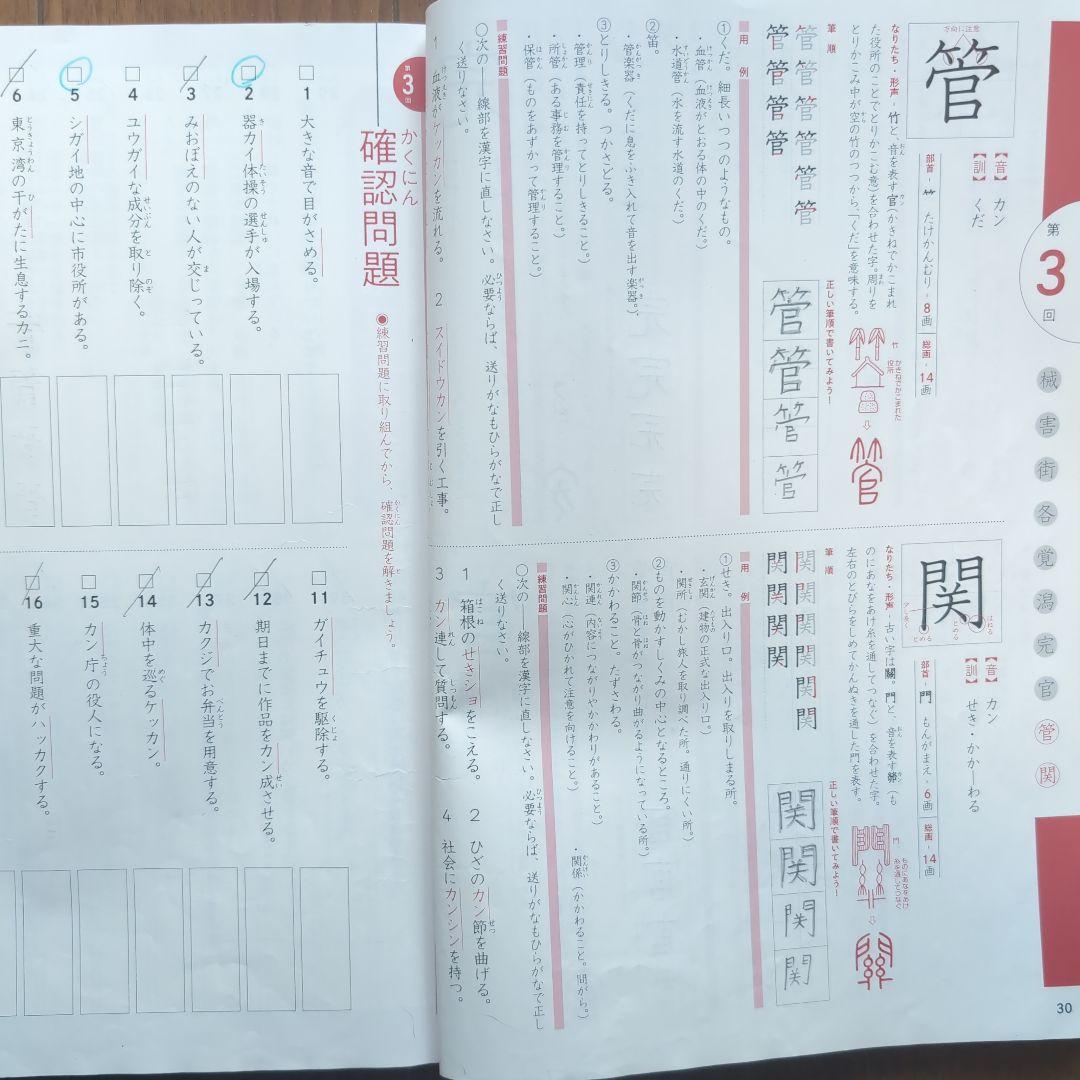 第
3
回
械
害
街
各
覚
潟
完
官
管
関
管
方向に注意
【音】 カン
【訓】 くだ
部首-⺮ たけかんむり-8画 総画-14画
なりたち・形声-竹と、音を表す官(かきねでかこまれ
た役所のことでとりかこむ意)を合わせた字。周りを
とりかこみ中が空の竹のつつから、「くだ」を意味する。
竹
かきねでかこまれた
役所
筆順
管管管管管管管管管
正しい筆順で書いてみよう!
管
管
管
管
用例
①くだ。細長いつつのようなもの。
・血管(血液がとおる体の中のくだ。)
・水道管(水を流す水道のくだ。)
②笛。
・管楽器(くだに息をふき入れて音を出す楽器。)
③とりしきる。つかさどる。
・管理(責任を持ってとりしきること。)
・所管(ある事務を管理すること。)
・保管(ものをあずかって管理すること。)
練習問題
○次の――線部を漢字に直しなさい。必要ならば、送りがなもひらがなで正し
く送りなさい。
1 血液がケッカンを流れる。
2 スイドウカンを引く工事。
関
はねる
とめる
とめる
【音】 カン
【訓】 せき・かか-わる
部首-門 もんがまえ-6画 総画-14画
なりたち・形声-古い字は關。門と、音を表す𢇅(も
のにあなをあけ糸を通してつなぐ)を合わせた字。
左右のとびらをしめてかんぬきを通した門を表す。
門
ものにあなをあけ
糸を通してつなぐ
筆順
関関関関関関関関関関
正しい筆順で書いてみよう!
関
関
関
関
用例
①せき。出入り口。出入りを取りしまる所。
・玄関(建物の正式な出入り口。)
・関所(むかし旅人を取り調べた所。通りにくい所。)
②ものを動かすしくみの中心となるところ。
・関節(骨と骨がつながり曲がるようになっている所。)
③かかわること。たずさわる。
・関連(内容につながりやかかわりがあること。)
・関心(心がひかれて注意を向けること。)
・関係(かかわること。間がら。)
練習問題
○次の――線部を漢字に直しなさい。必要ならば、送りがなもひらがなで正し
く送りなさい。
1 箱根のせきショをこえる。
2 ひざのカン節を曲げる。
3 カン連して質問する。
4 社会にカンシンを持つ。
30
第3回
確認問題
かくにん
◉練習問題に取り組んでから、確認問題を解きましょう。
1 大きな音で目がさめる。
2 器カイ体操の選手が入場する。
3 みおぼえのない人が交じっている。
4 ユウガイな成分を取り除く。
5 シガイ地の中心に市役所がある。
6 東京湾の干がたに生息するカニ。
11 ガイチュウを駆除する。
12 期日までに作品をカン成させる。
13 カクジでお弁当を用意する。
14 体中を巡るケッカン。
15 カン庁の役人になる。
16 重大な問題がハッカクする。